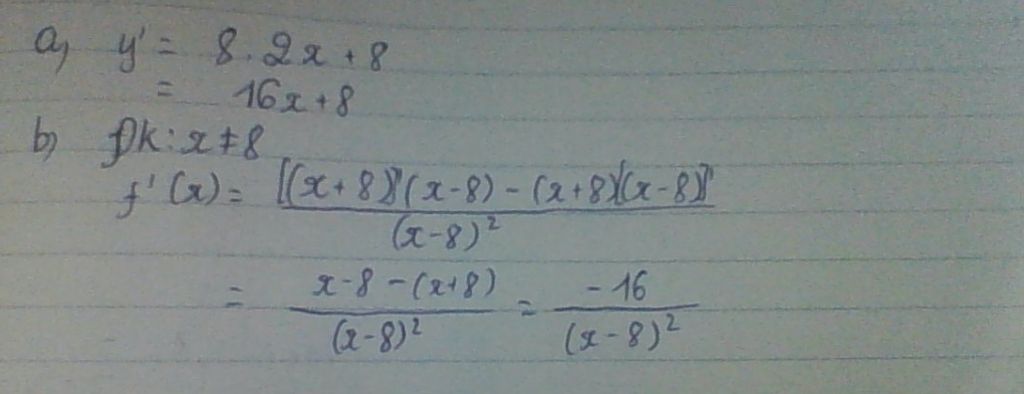 a, y' = 8.2x + 8
= 16x + 8
b, ĐK: x ≠ 8
f'(x) = [(x + 8)]'(x - 8) - (x + 8)[(x - 8)]' / (x - 8)²
= x - 8 - (x + 8) / (x - 8)² = -16 / (x - 8)²